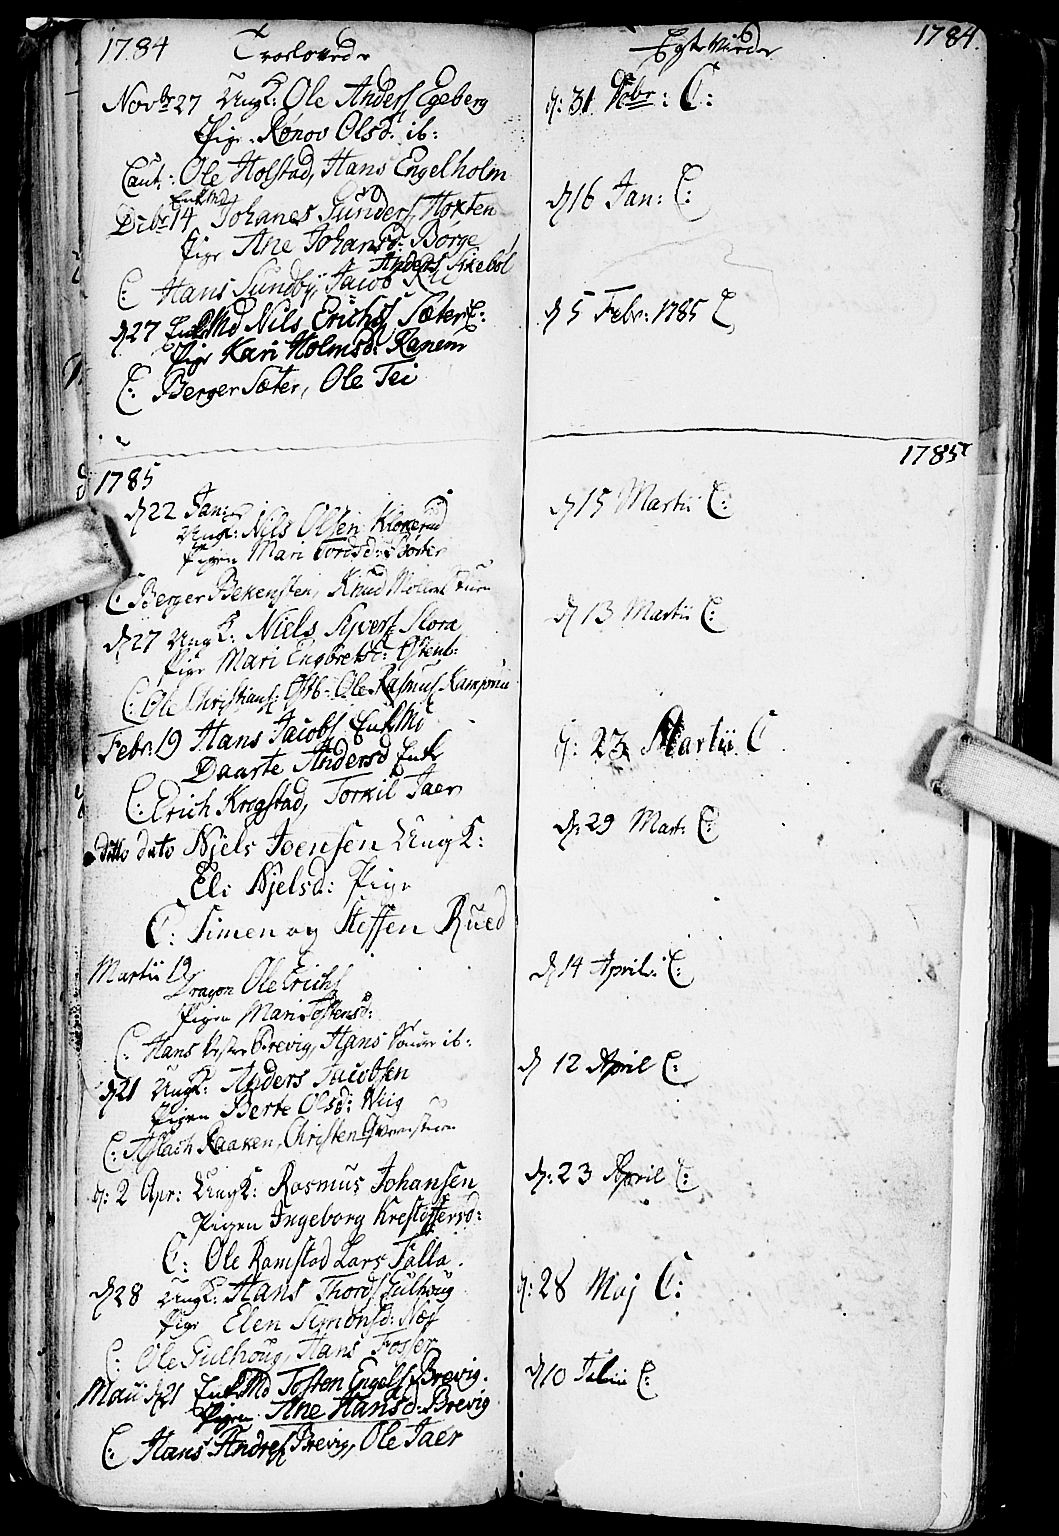 1784 Troelovede
Novbr 27 Ungk: Ole Anders Egeberg
Pige Rønov Olsd: ib:
Caut: Ole Holstad, Hans Engelholm
Enkmd
Decbr 14 Johanes Gunders. Hoxten
Pige Ane Johansd: Børge
Anders Skebøl
C. Hans Sundby, Jacob
d 27 EnkMd Nils Erichs Sæter
Pige Kari Holmsd: Ranem
C: Berger Sæter, Ole Tei
1785
d 22 Jan:
Ungk: Nils Olsen Kiokerud
Pigen Mari Tordsd: Børter
C: Berger Bekensten, Knud
d 27 Ungk: Niels Syvers. Slora
Pige Mari Engbretsd: Østenb:
C: Ole Christians: Østb. Ole Rasmus.
Febr: 19 Hans Jacobs EnkMd
Daarte Andersd Enke
C: Erich Krogstad, Torkil Jaer
Ditto dato Njels Joensen Ungk:
Eli Njelsd: Pige
C: Simen og Steffen Rued
Martii 19
Dragon Ole Erichs
Pigen Mari Tostensd:
C: Hans Vestre Brevig, Hans ib:
d 21 Ungk: Anders Jacobsen
Pigen Berte Olsd: Wiig
C: Aslach Raaken, Christen
d: 2 Apr: Ungk: Rasmus Johansen
Pigen Ingeborg Krestoffersd:
C: Ole Ramstad Lars Falla.
d 28 Ungk: Hans Thords Gulhoug
Pige Elen Simonsd: Næs
C: Ole Gulhoug, Hans Fosser
Maii d 21 EnkMd Tosten Engels. Brevig.
Pigen Ane Hansd: Brevig
C: Hans Anders Brevig, Ole Jaer
Egteviede 1784.
d: 31 Xbr: C:
d 16 Jan: C:
d 5 Febr: 1785 C
1785
d 15 Martii C:
d 13 Martii C:
d: 23 Martii C
d: 29 Mart: C:
d 14 April: C:
d 12 April C:
d: 23 April C:
d: 28 Maj C:
d 10 Julii C: